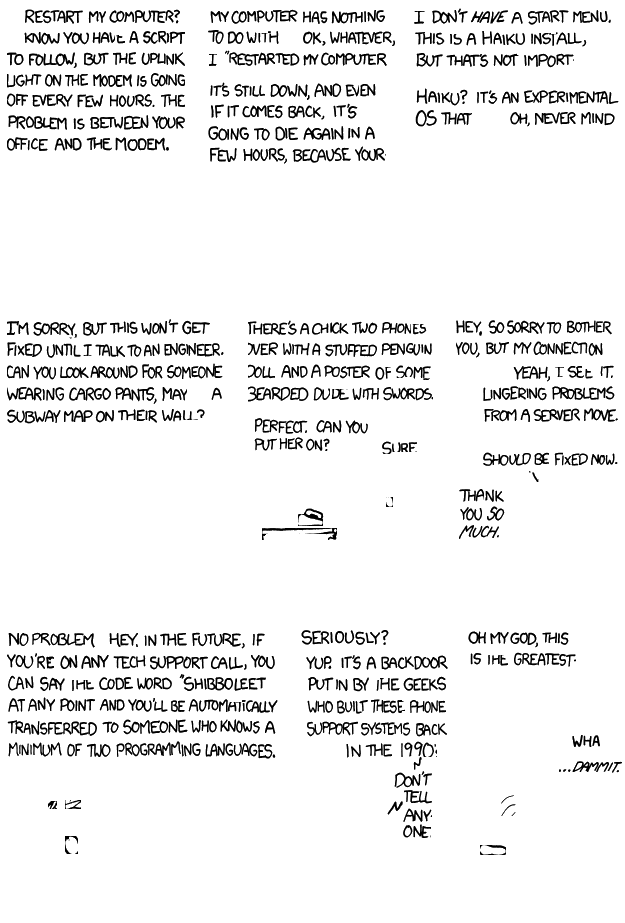 RESTART MY COMPUTER?
KNOW YOU HAVE A SCRIPT
TO FOLLOW, BUT THE UPLINK
LIGHT ON THE MODEM IS GOING
OFF EVERY FEW HOURS. THE
PROBLEM IS BETWEEN YOUR
OFFICE AND THE MODEM.
MY COMPUTER HAS NOTHING
TO DO WITH OK, WHATEVER,
I "RESTARTED MY COMPUTER
IT'S STILL DOWN, AND EVEN
IF IT COMES BACK, IT'S
GOING TO DIE AGAIN IN A
FEW HOURS, BECAUSE YOUR
I DON'T HAVE A START MENU.
THIS IS A HAIKU INSTALL,
BUT THAT'S NOT IMPORT
HAIKU? IT'S AN EXPERIMENTAL
OS THAT OH, NEVER MIND
I'M SORRY, BUT THIS WON'T GET
FIXED UNTIL I TALK TO AN ENGINEER.
CAN YOU LOOK AROUND FOR SOMEONE
WEARING CARGO PANTS, MAY A
SUBWAY MAP ON THEIR WALL?
THERE'S A CHICK TWO PHONES
OVER WITH A STUFFED PENGUIN
DOLL AND A POSTER OF SOME
BEARDED DUDE WITH SWORDS.
PERFECT. CAN YOU
PUT HER ON?
SURE.
HEY, SO SORRY TO BOTHER
YOU, BUT MY CONNECTION
YEAH, I SEE IT.
LINGERING PROBLEMS
FROM A SERVER MOVE.
SHOULD BE FIXED NOW.
THANK
YOU SO
MUCH.
NO PROBLEM HEY, IN THE FUTURE, IF
YOU'RE ON ANY TECH SUPPORT CALL, YOU
CAN SAY THE CODE WORD "SHIBBOLEET
AT ANY POINT AND YOU'LL BE AUTOMATICALLY
TRANSFERRED TO SOMEONE WHO KNOWS A
MINIMUM OF TWO PROGRAMMING LANGUAGES.
SERIOUSLY?
YUP. IT'S A BACKDOOR
PUT IN BY THE GEEKS
WHO BUILT THESE PHONE
SUPPORT SYSTEMS BACK
IN THE 1990'
DON'T
TELL
ANY-
ONE.
OH MY GOD, THIS
IS THE GREATEST
WHA
...DAMMIT.